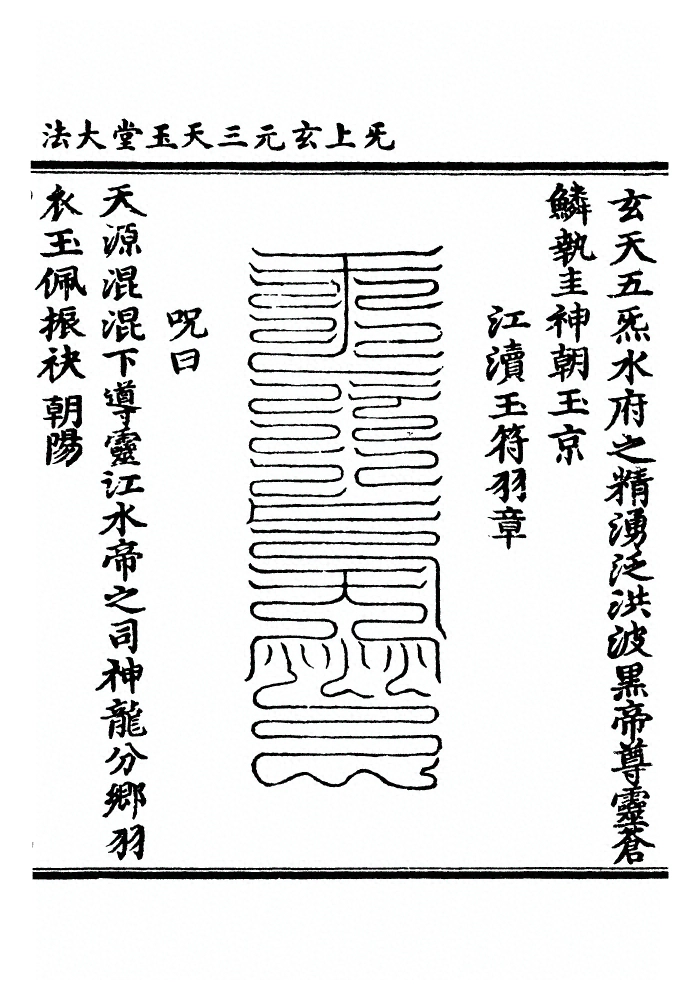 法大堂玉天三元玄上旡
玄天五炁水府之精湧泛洪波黑帝尊靈蒼
鱗執圭神朝玉京
江瀆玉符羽章
呪曰
天源混混下導靈江水帝之司神龍分鄉羽
衣玉佩振袂朝陽